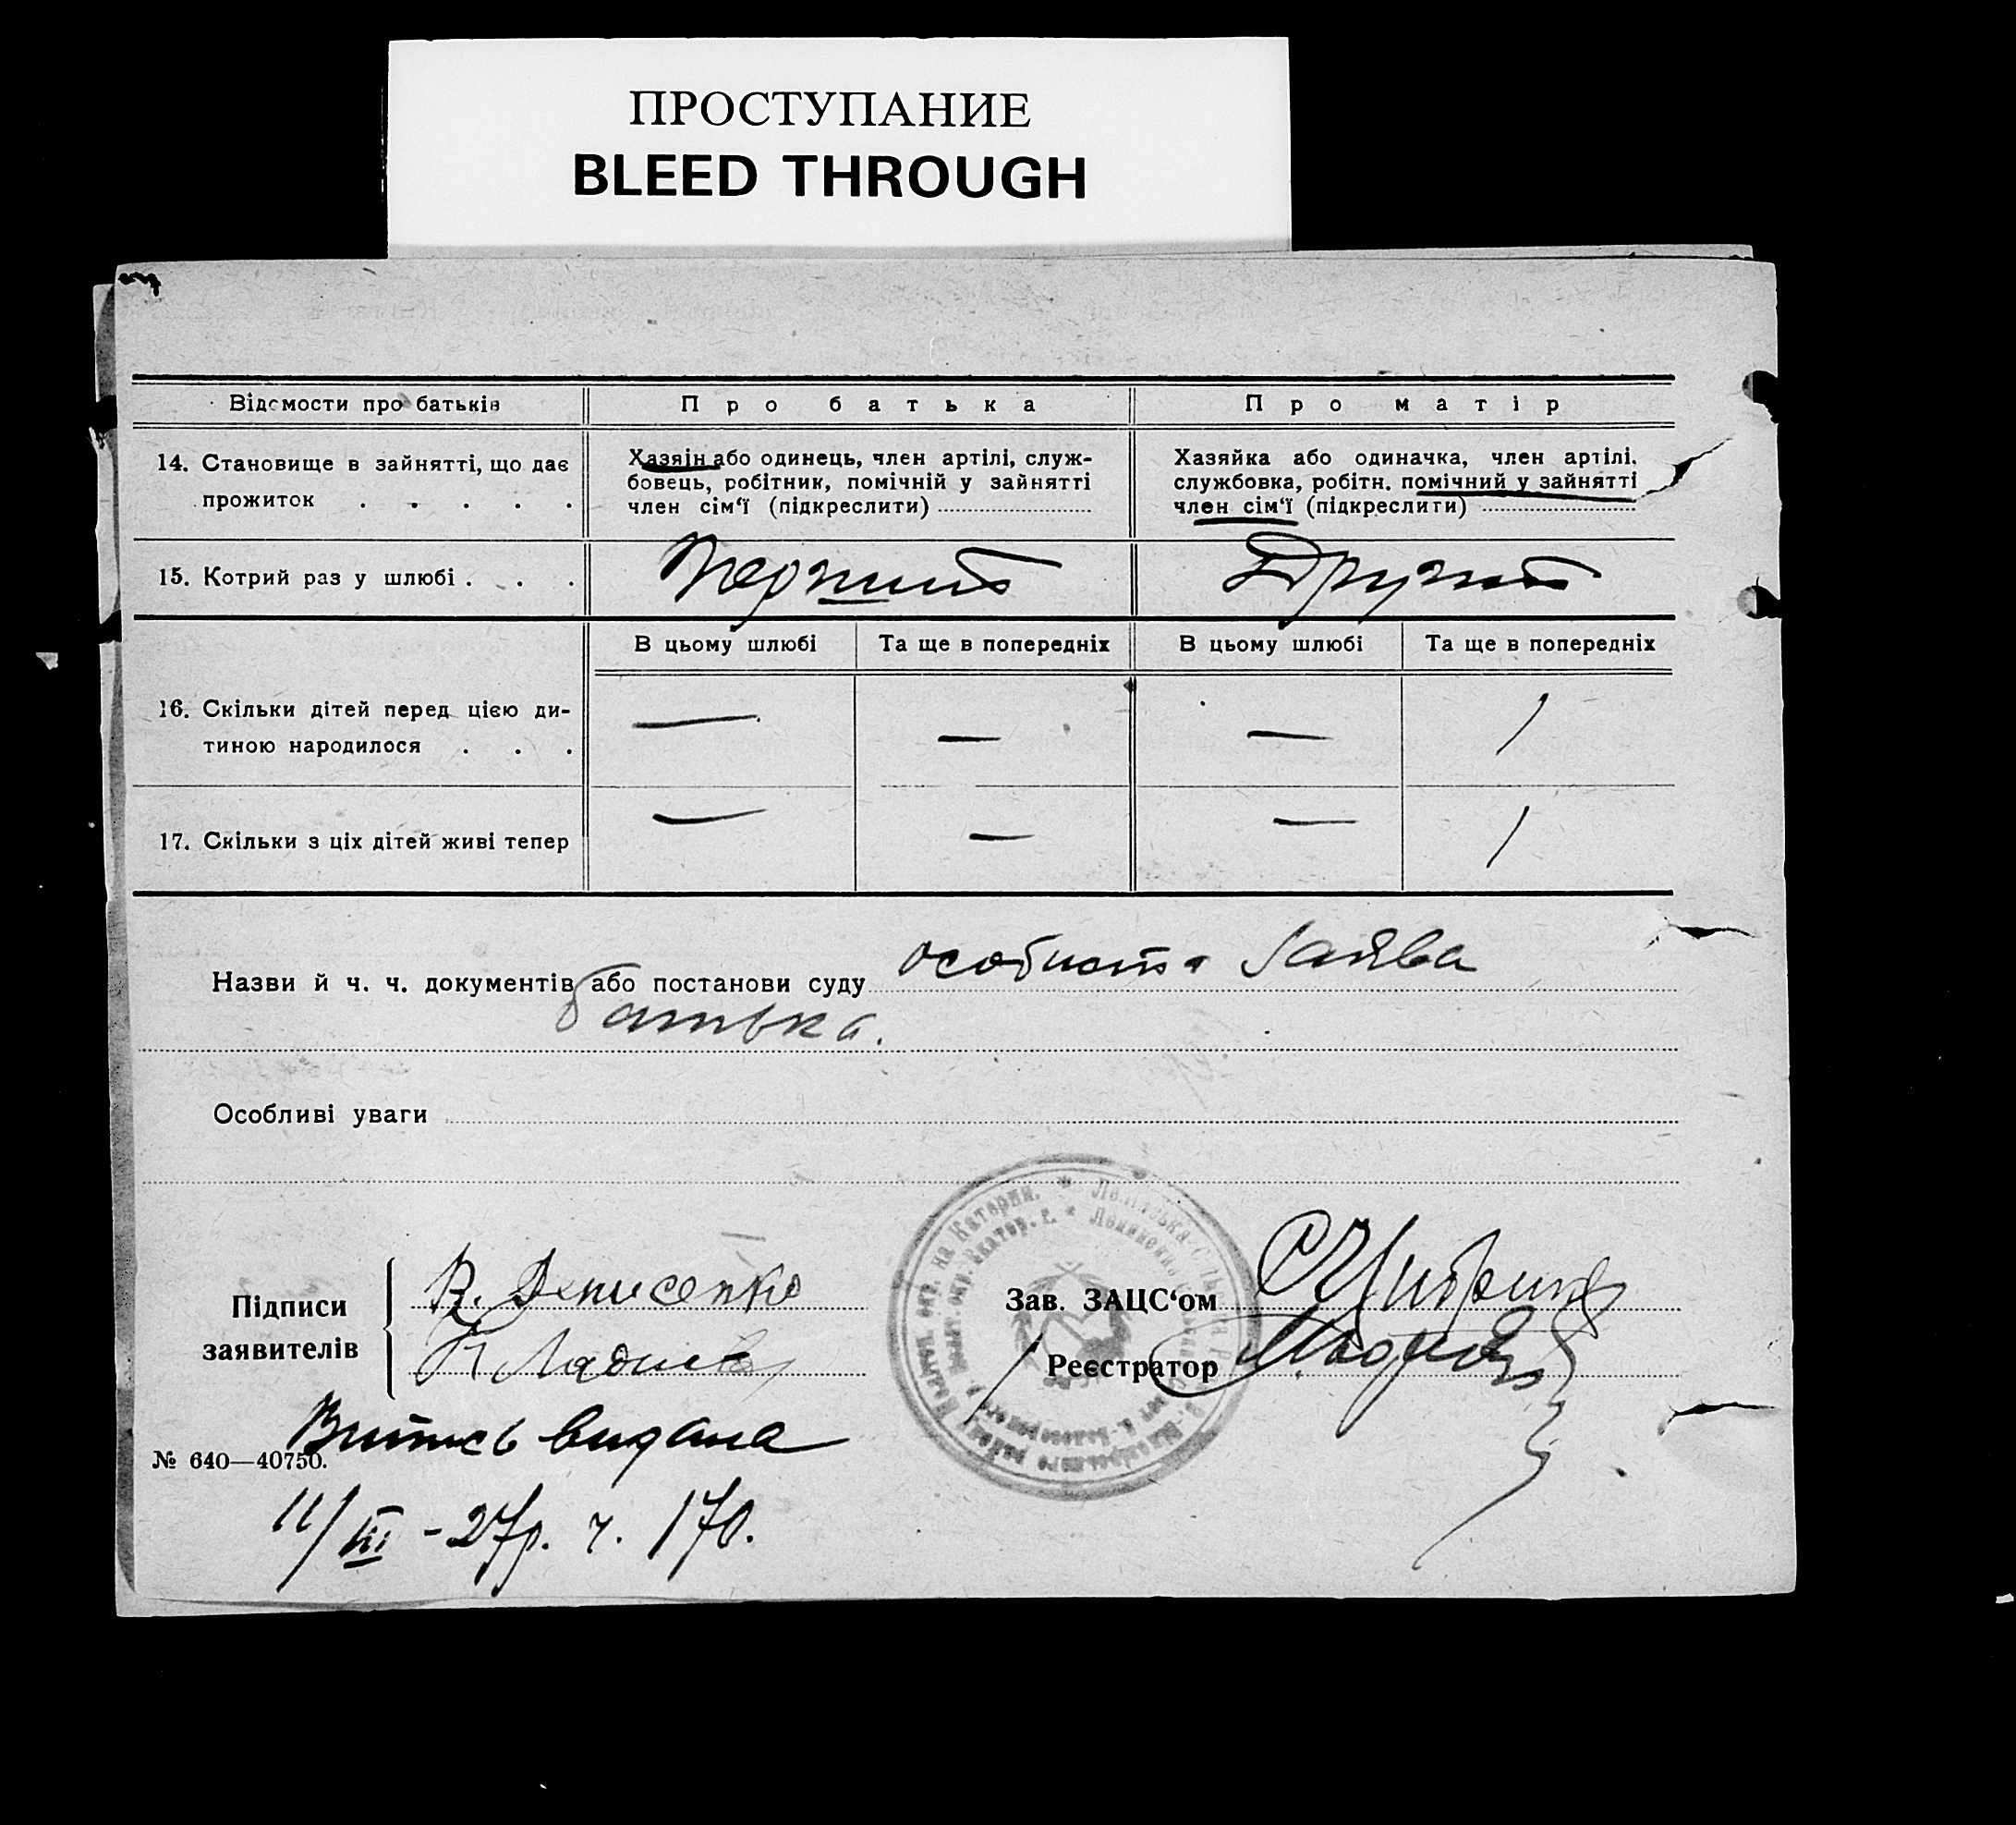 ПРОСТУПАНИЕ
BLEED THROUGH
Відомости про батьків
Про батька
Про матір
14. Становище в зайнятті, що дає
прожиток . . . . .
Хазяін або одинець, член артілі, служ-
бовець, робітник, помічній у зайнятті
член сім‘ї (підкреслити)
Хазяйка або одиначка, член артілі,
службовка, робітн. помічний у зайнятті
член сім‘ї (підкреслити)
15. Котрий раз у шлюбі . . .
Перший
Другий
В цьому шлюбі
Та ще в попередніх
В цьому шлюбі
Та ще в попередніх
16. Скільки дітей перед цією ди-
тиною народилося . . .
— — — 1
17. Скільки з ціх дітей живі тепер
— — — 1
Назви й ч. ч. документів або постанови суду особиста заява
батька.
Особливі уваги
Підписи
заявителів
В. Денисенко
Зав. ЗАЦС‘ом
Реєстратор
Витись видана
№ 640—40750.
11/III - 27р. ч. 170.